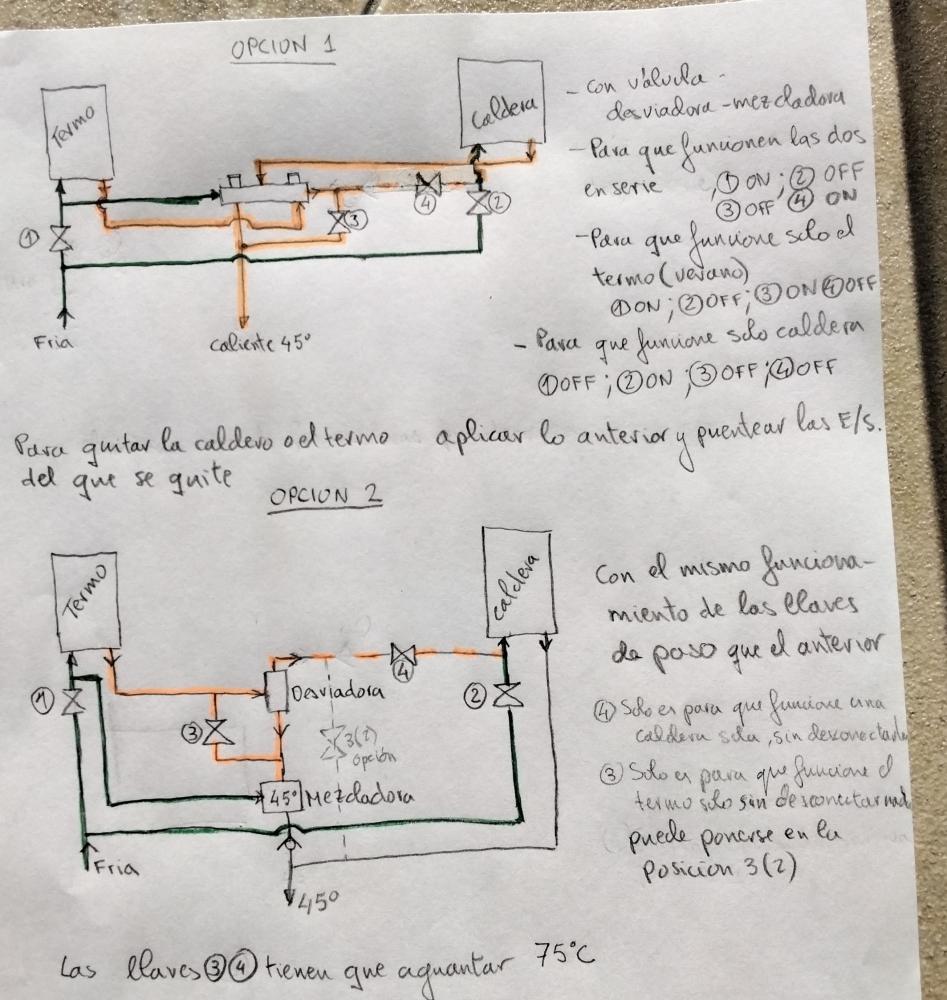 OPCION 1
Termo
Caldera
①
②
③
④
Fria
caliente 45º
- Con válvula
desviadora-mezcladora
- Para que funcionen las dos
en serie ① ON; ② OFF
③ OFF ④ ON
- Para que funcione solo el
termo (verano)
① ON; ② OFF; ③ ON ④ OFF
- Para que funcione solo caldera
① OFF; ② ON; ③ OFF; ④ OFF
Para quitar la caldero o el termo aplicar lo anterior y puentear las E/S.
del que se quite
OPCION 2
Termo
Caldera
①
②
③
④
Desviadora
3(2)
opción
45º Mezcladora
Fria
45º
Con el mismo funciona-
miento de las llaves
de paso que el anterior
④ Solo es para que funcione una
caldera sola, sin desconectar
③ Solo es para que funcione el
termo solo sin desconectar
puede ponerse en la
posicion 3(2)
Las llaves ③ ④ tienen que aguantar 75°C